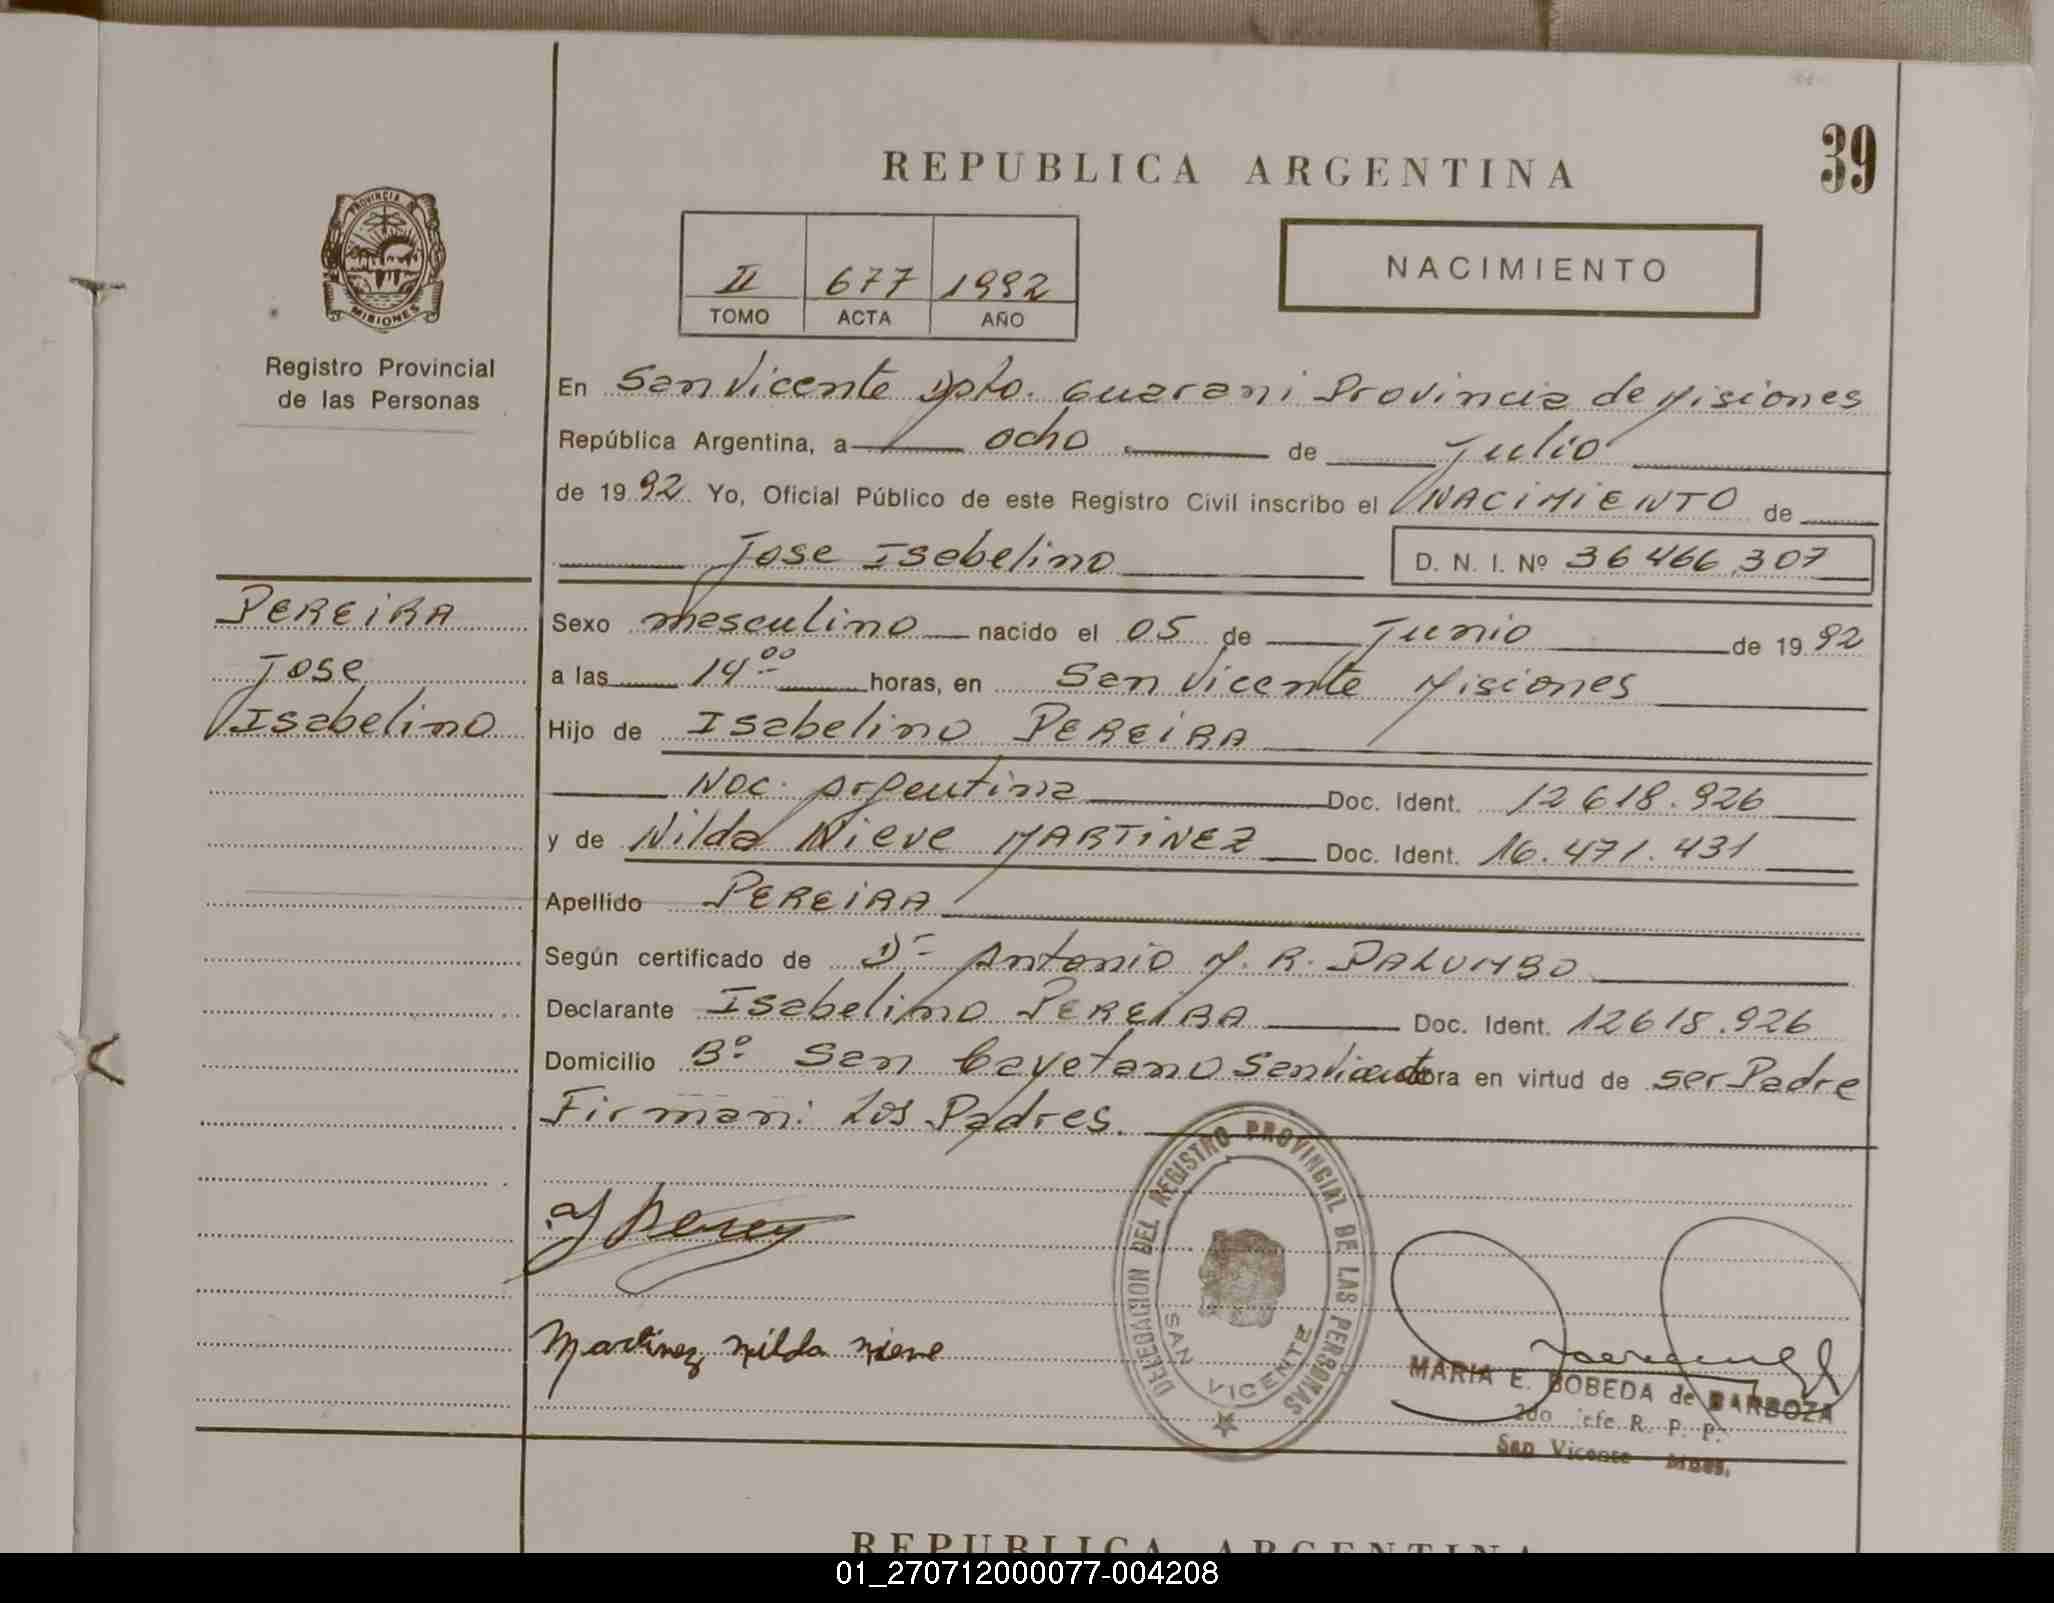 39
REPUBLICA ARGENTINA
PROVINCIA
MISIONES
Registro Provincial
de las Personas
II 677 1992
TOMO ACTA AÑO
NACIMIENTO
En San Vicente Dpto. Guarani Provincia de Misiones
República Argentina, a ocho de Julio
de 1992 Yo, Oficial Público de este Registro Civil inscribo el NACIMIENTO de
Jose Isabelino D. N. I. Nº 36466.307
PEREIRA
Jose
Isabelino
Sexo masculino nacido el 05 de Junio de 1992
a las 14⁰⁰ horas, en San Vicente Misiones
Hijo de Isabelino PEREIRA
Nac. Argentina Doc. Ident. 12618.926
y de Nilda Nieve MARTINEZ Doc. Ident. 16.471.431
Apellido PEREIRA
Según certificado de Dr Antonio M. R. PALUMBO
Declarante Isabelino PEREIRA Doc. Ident. 12618.926
Domicilio Bº San Cayetano San Vicente obra en virtud de ser Padre
Firman: Los Padres.
DELEGACION DEL REGISTRO PROVINCIAL DE LAS PERSONAS
SAN VICENTE
Martinez nilda nieve
MARIA E. BOBEDA de BARBOZA
2do Jefe R. P. P.
San Vicente - Mnes.
REPUBLICA ARGENTINA
01_270712000077-004208